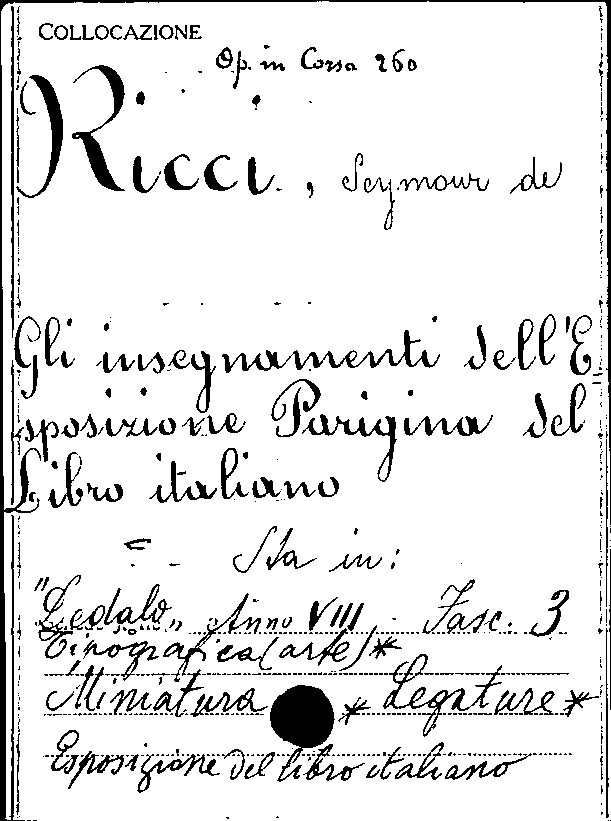 COLLOCAZIONE
Op. in Corsa 260
Ricci, Seymour de
Gli insegnamenti dell'E=
sposizione Parigina del
Libro italiano
= - Sta in:
"Dedalo„ Anno VIII - Fasc. 3
Tipografica (arte)*
Miniatura * Legature *
Esposizione del libro italiano